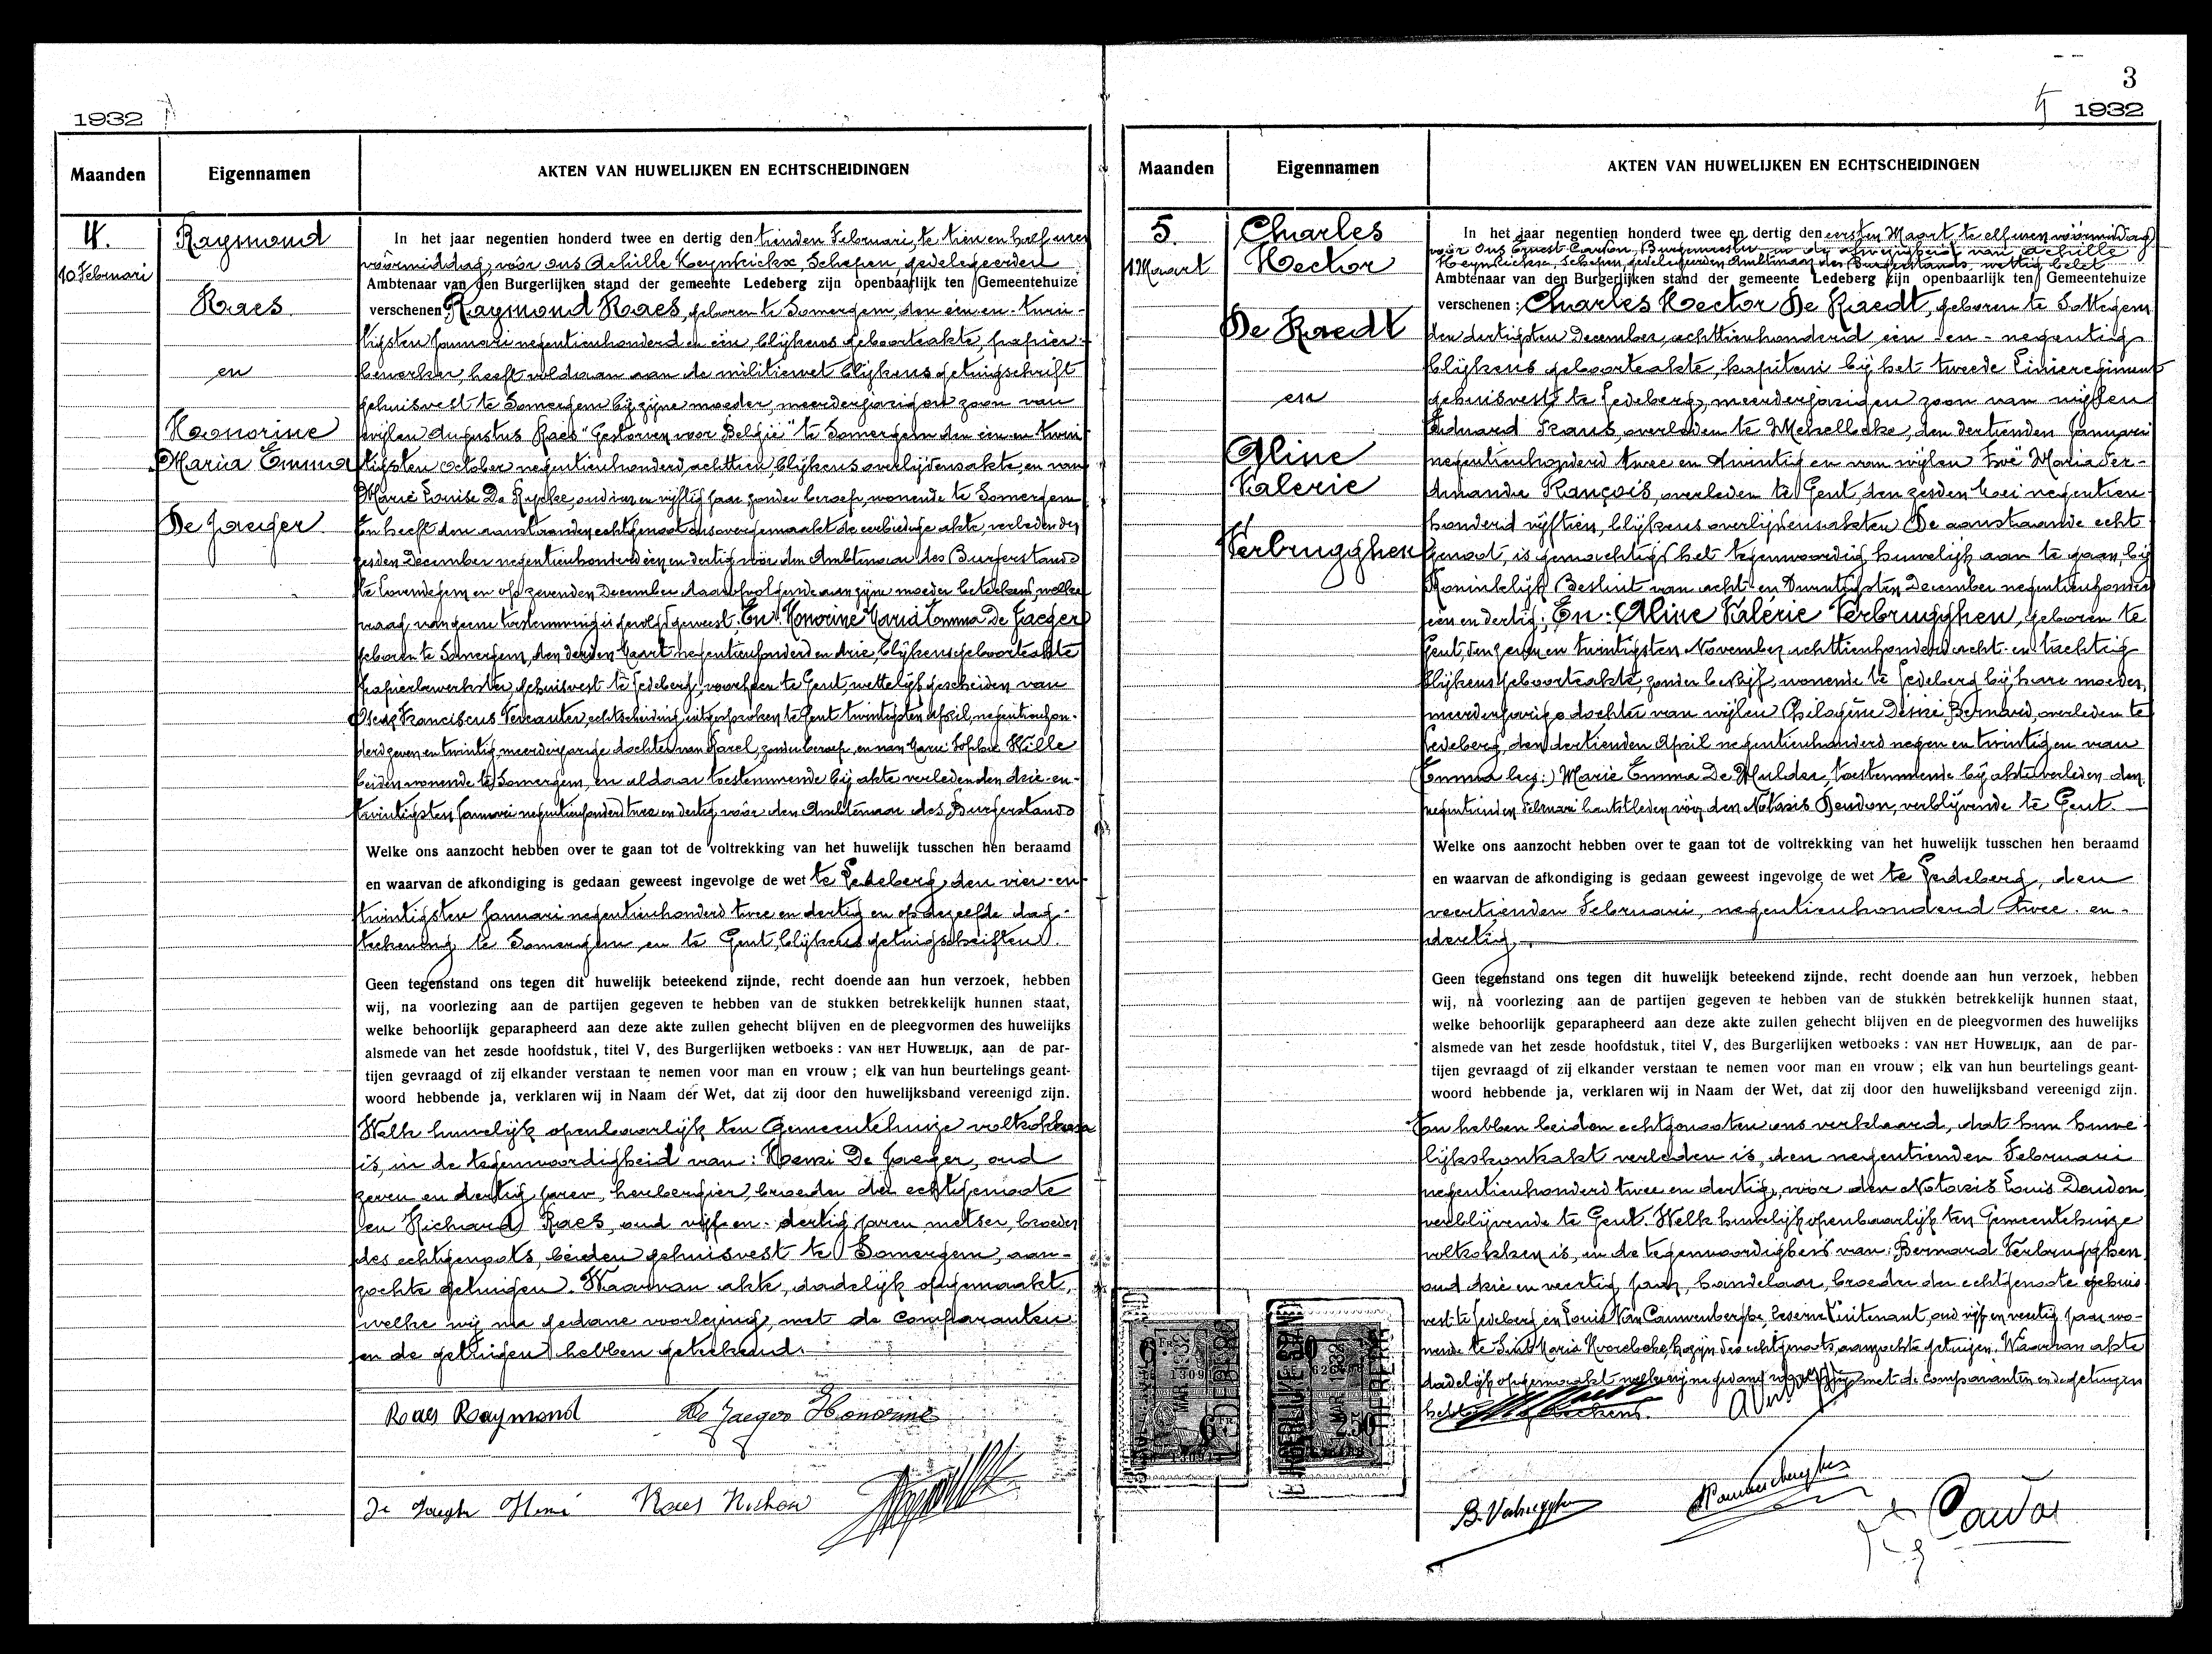 1932
Maanden
Eigennamen
AKTEN VAN HUWELIJKEN EN ECHTSCHEIDINGEN
4.
10 Februari
Raymond
Raes
en
Honorine
Maria Emma
De Jaeger
In het jaar negentien honderd twee en dertig den tienden Februari, te tien en half uren
vóórmiddag, vóór ons Achille Heynderickx, Schepen, gedelegeerden
Ambtenaar van den Burgerlijken stand der gemeente Ledeberg zijn openbaarlijk ten Gemeentehuize
verschenen: Raymond Raes, geboren te Somergem, den één en twin-
tigsten Januari negentienhonderd en één, blijkens geboorteakte, papier-
bewerker, heeft voldaan aan de militiewet blijkens getuigschrift
gehuisvest te Somergem bij zijne moeder, meerderjarigen zoon van
wijlen Augustus Raes "Gestorven voor België" te Somergem den één en twin-
tigsten october negentienhonderd achttien, blijkens overlijdensakte, en van
Marie Louise De Rycke, oud in en vijftig jaar zonder beroep, wonende te Somergem
En heeft den aanstaanden echtgenoot ons overgemaakt de eerbiedige akte, verleden den
zesden December negentienhonderd één en dertig vóór den Ambtenaar des Burgerstands
te Lovendegem en op zevenden December daaropvolgende aan zijne moeder beteekend, welke
vraag van geene toestemming is gevolgd geweest. En: Honorine Maria Emma De Jaeger
geboren te Somergem, den derden Maart negentienhonderd en drie, blijkens geboorteakte
papierbewerkster, gehuisvest te Ledeberg, voorheen te Gent, wettelijk gescheiden van
Oscar Franciscus Vercauter, echtscheiding uitgesproken te Gent twintigsten April, negentienhon-
derd zeven en twintig, meerderjarige dochter van Karel, zonder beroep, en van Marie Sophie Wille
beiden wonende te Somergem, en aldaar toestemmende bij akte verleden den drie-en-
twintigsten Januari negentienhonderd twee en dertig vóór den Ambtenaar des Burgerstands
Welke ons aanzocht hebben over te gaan tot de voltrekking van het huwelijk tusschen hen beraamd
en waarvan de afkondiging is gedaan geweest ingevolge de wet te Ledeberg, den vier-en-
twintigsten Januari negentienhonderd twee en dertig en op dezelfde dag-
teekening te Somergem en te Gent, blijkens getuigschriften.
Geen tegenstand ons tegen dit huwelijk beteekend zijnde, recht doende aan hun verzoek, hebben
wij, na voorlezing aan de partijen gegeven te hebben van de stukken betrekkelijk hunnen staat,
welke behoorlijk geparapheerd aan deze akte zullen gehecht blijven en de pleegvormen des huwelijks
alsmede van het zesde hoofdstuk, titel V, des Burgerlijken wetboeks : VAN HET HUWELIJK, aan de par-
tijen gevraagd of zij elkander verstaan te nemen voor man en vrouw ; elk van hun beurtelings geant-
woord hebbende ja, verklaren wij in Naam der Wet, dat zij door den huwelijksband vereenigd zijn.
Welk huwelijk openbaarlijk ten Gemeentehuize voltrokken
is, in de tegenwoordigheid van: Henri De Jaeger, oud
zeven en dertig jaren, herbergier, broeder der echtgenoote
en Richard Raes, oud vijf-en-dertig jaren metser, broeder
des echtgenoots, beiden gehuisvest te Somergem, aan-
zochte getuigen. Waarvan akte, dadelijk opgemaakt,
welke wij na gedane voorlezing, met de comparanten
en de getuigen hebben geteekend.
Raes Raymond De Jaeger Honorine
De Jaeger Henri Raes Richard
3
1932
Maanden
Eigennamen
AKTEN VAN HUWELIJKEN EN ECHTSCHEIDINGEN
5.
1 Maart
Charles
Hector
De Raedt
en
Aline
Valerie
Verbrugghen
In het jaar negentien honderd twee en dertig den eersten Maart te elf uren vóórmiddag
vóór Ons Ernest Caudon, Burgemeester in de afwezigheid van Achille
Heynderickx, Schepen, gedelegeerden Ambtenaar des Burgerstands, wettig belet
Ambtenaar van den Burgerlijken stand der gemeente Ledeberg zijn openbaarlijk ten Gemeentehuize
verschenen: Charles Hector De Raedt, geboren te Sottegem
den dertigsten December, achttienhonderd één-en-negentig
blijkens geboorteakte, kapitein bij het tweede Linieregiment
gehuisvest te Ledeberg, meerderjarigen zoon van wijlen
Eduard Frans, overleden te Melsele, den dertienden Januari
negentienhonderd twee en twintig en van wijlen Zoë Maria Fer-
dinande François, overleden te Gent, den zesden Mei negentien-
honderd vijftien, blijkens overlijdensakten De aanstaande echt
genoot, is gemachtigd het tegenwoordig huwelijk aan te gaan, bij
Koninklijk Besluit van acht-en-twintigsten December negentienhonderd
één en dertig; En: Aline Valérie Verbrugghen, geboren te
Gent, den zeven en twintigsten November achttienhonderd acht-en tachtig
blijkens geboorteakte, zonder bedrijf, wonende te Ledeberg bij hare moeder,
meerderjarige dochter van wijlen Philogène Désiré Bernard, overleden te
Ledeberg, den dertienden April negentienhonderd negen en twintig en van
(Emma leeg:) Marie Emma De Mulder, toestemmende bij akte verleden den
negentienden Februari laatstleden vóór den Notaris Daudon, verblijvende te Gent.
Welke ons aanzocht hebben over te gaan tot de voltrekking van het huwelijk tusschen hen beraamd
en waarvan de afkondiging is gedaan geweest ingevolge de wet te Ledeberg, den
veertienden Februari, negentienhonderd twee-en-
dertig.
Geen tegenstand ons tegen dit huwelijk beteekend zijnde, recht doende aan hun verzoek, hebben
wij, na voorlezing aan de partijen gegeven te hebben van de stukken betrekkelijk hunnen staat,
welke behoorlijk geparapheerd aan deze akte zullen gehecht blijven en de pleegvormen des huwelijks
alsmede van het zesde hoofdstuk, titel V, des Burgerlijken wetboeks : VAN HET HUWELIJK, aan de par-
tijen gevraagd of zij elkander verstaan te nemen voor man en vrouw ; elk van hun beurtelings geant-
woord hebbende ja, verklaren wij in Naam der Wet, dat zij door den huwelijksband vereenigd zijn.
En hebben beiden echtgenooten ons verklaard, dat hun huwe-
lijkskontrakt verleden is, den negentienden Februari
negentienhonderd twee en dertig, vóór den Notaris Louis Daudon,
verblijvende te Gent. Welk huwelijk openbaarlijk ten Gemeentehuize
voltrokken is, in de tegenwoordigheid van: Bernard Verbrugghen
oud drie en veertig jaar, handelaar, broeder der echtgenoote gehuis-
vest te Ledeberg en Louis Van Cauwenberghe, reserve Luitenant, oud vijf en veertig jaar wo-
nende te Sint Maria Hoorebeke, kozijn des echtgenoots, aanzochte getuigen. Waarvan akte
dadelijk opgemaakt welke wij na gedane voorlezing met de comparanten en de getuigen
hebben geteekend.
B. Verbrugghen